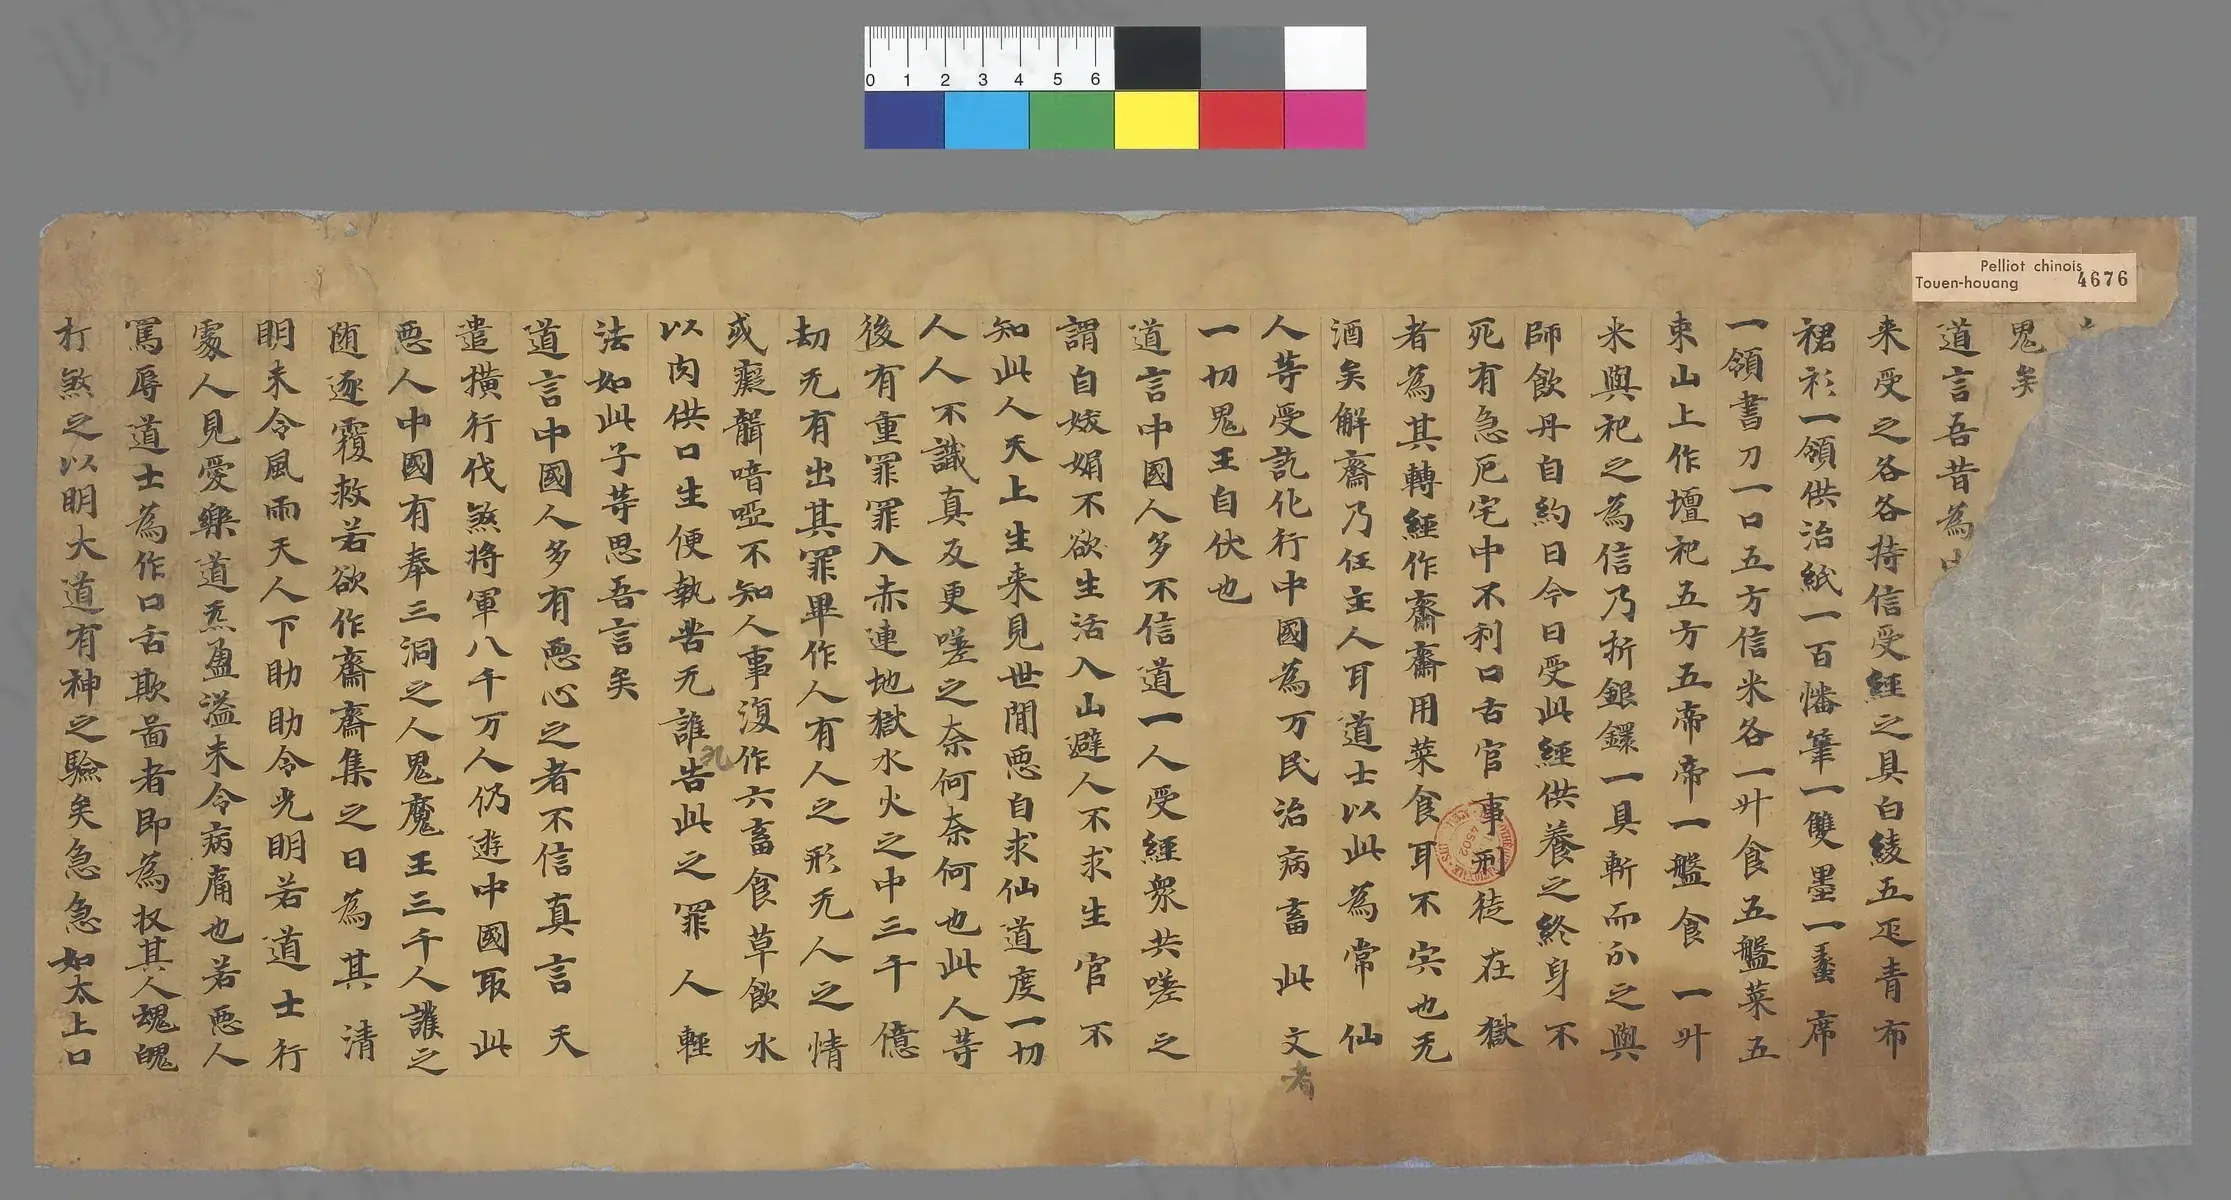 Pelliot chinois
Touen-houang 4676
0 1 2 3 4 5 6
鬼矣
道言吾昔為
来受之各各持信受經之具白綾五疋青布
裙衫一領供治紙一百幡筆一雙墨一螯席
一領書刀一口五方信米各一升食五盤菜五
束山上作壇祀五方五帝帝一盤食一升
米與祀之為信乃折銀鐶一具斬而分之與
師飲丹自約曰今日受此經供養之終身不
死有急厄宅中不利口舌官事刑徒在獄
者為其轉經作齋齋用菜食耳不宍也无
酒矣解齋乃任主人耳道士以此為常仙
人等受訖化行中國為万民治病畜此文者
一切鬼王自伏也
道言中國人多不信道一人受經衆共嗟之
謂自妭娟不欲生活入山避人不求生官不
知此人天上生来見世間惡自求仙道度一切
人人不識真及更嗟之奈何奈何也此人等
後有重罪罪入赤連地獄水火之中三千億
劫无有出其罪畢作人有人之形无人之情
或癡聾喑啞不知人事復作六畜食草飲水
以肉供口生便執苦无誰告此之罪人輕
法如此子等思吾言矣
道言中國人多有惡心之者不信真言天
遣橫行伐煞将軍八千万人仍遊中國取此
惡人中國有奉三洞之人鬼魔王三千人護之
随逐覆救若欲作齋齋集之日為其清
明未令風雨天人下助助令光明若道士行
處人見愛樂道炁盈溢未令病痛也若惡人
罵辱道士為作口舌欺啚者即為收其人魂魄
打煞之以明大道有神之驗矣急急如太上口